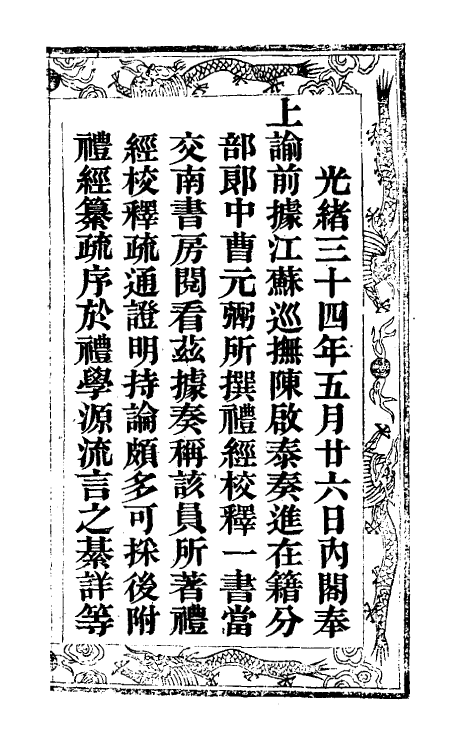 光緒三十四年五月廿六日內閣奉
上諭前據江蘇巡撫陳啟泰奏進在籍分
部郎中曹元弼所撰禮經校釋一書當
交南書房閱看茲據奏稱該員所著禮
經校釋疏通證明持論頗多可採後附
禮經纂疏序於禮學源流言之綦詳等